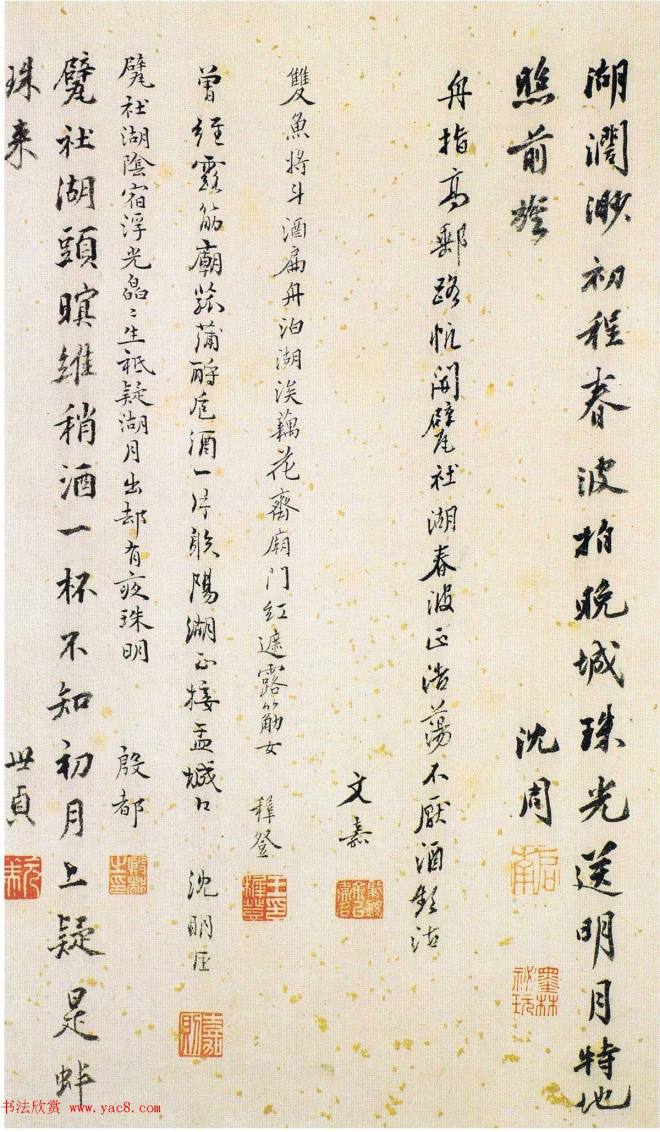 湖濶渺初程春波拍晚城珠光送明月特地
照前旌
沈周
舟指高郵路帆開甓社湖春波正浩蕩不厭酒頻沽
文嘉
雙魚將斗酒扁舟泊湖涘藕花齊廟門紅遮露筋女
穉登
曾經露筋廟菰蒲酹卮酒一片餘陽湖正接盂城口
沈明臣
甓社湖陰宿浮光皛〻生祗疑湖月出却有夜珠明
殷都
甓社湖頭暝維稍酒一杯不知初月上疑是蚌
珠来
世貞
墨林
祕玩
书法欣赏 www.yac8.com